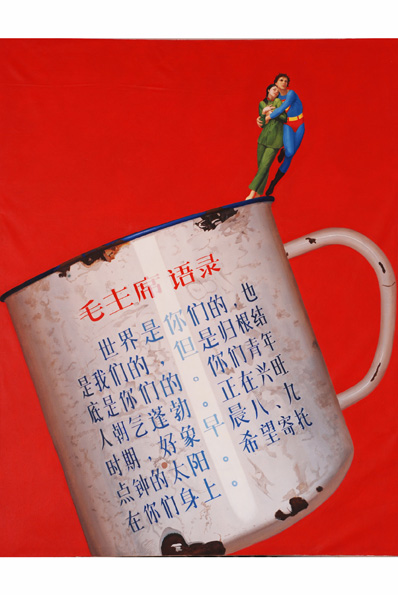 毛主席 语录
世界是你们的，也
是我们的，但是归根结
底是你们的。你们青年
人朝气蓬勃。正在兴旺
时期，好象早晨八、九
点钟的太阳。希望寄托
在你们身上。